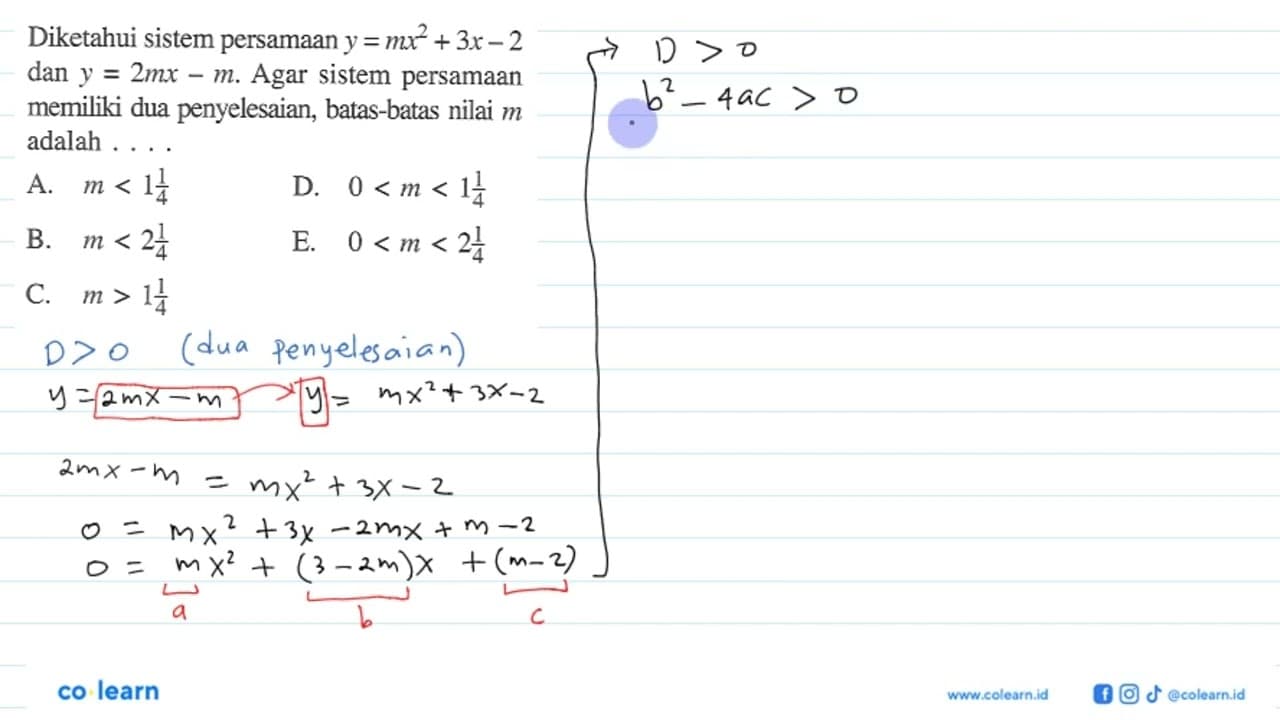 Diketahui sistem persamaan y = mx² + 3x – 2
dan y = 2mx – m. Agar sistem persamaan
memiliki dua penyelesaian, batas-batas nilai m
adalah . . . .
A. m < 1 1/4
D. 0 < m < 1 1/4
B. m < 2 1/4
E. 0 < m < 2 1/4
C. m > 1 1/4
D > 0 (dua penyelesaian)
y = 2mx – m y = mx² + 3x – 2
2mx – m = mx² + 3x – 2
0 = mx² + 3x – 2mx + m – 2
0 = mx² + (3 – 2m)x + (m – 2)
a b c
D > 0
b² – 4ac > 0
co learn
www.colearn.id
@colearn.id